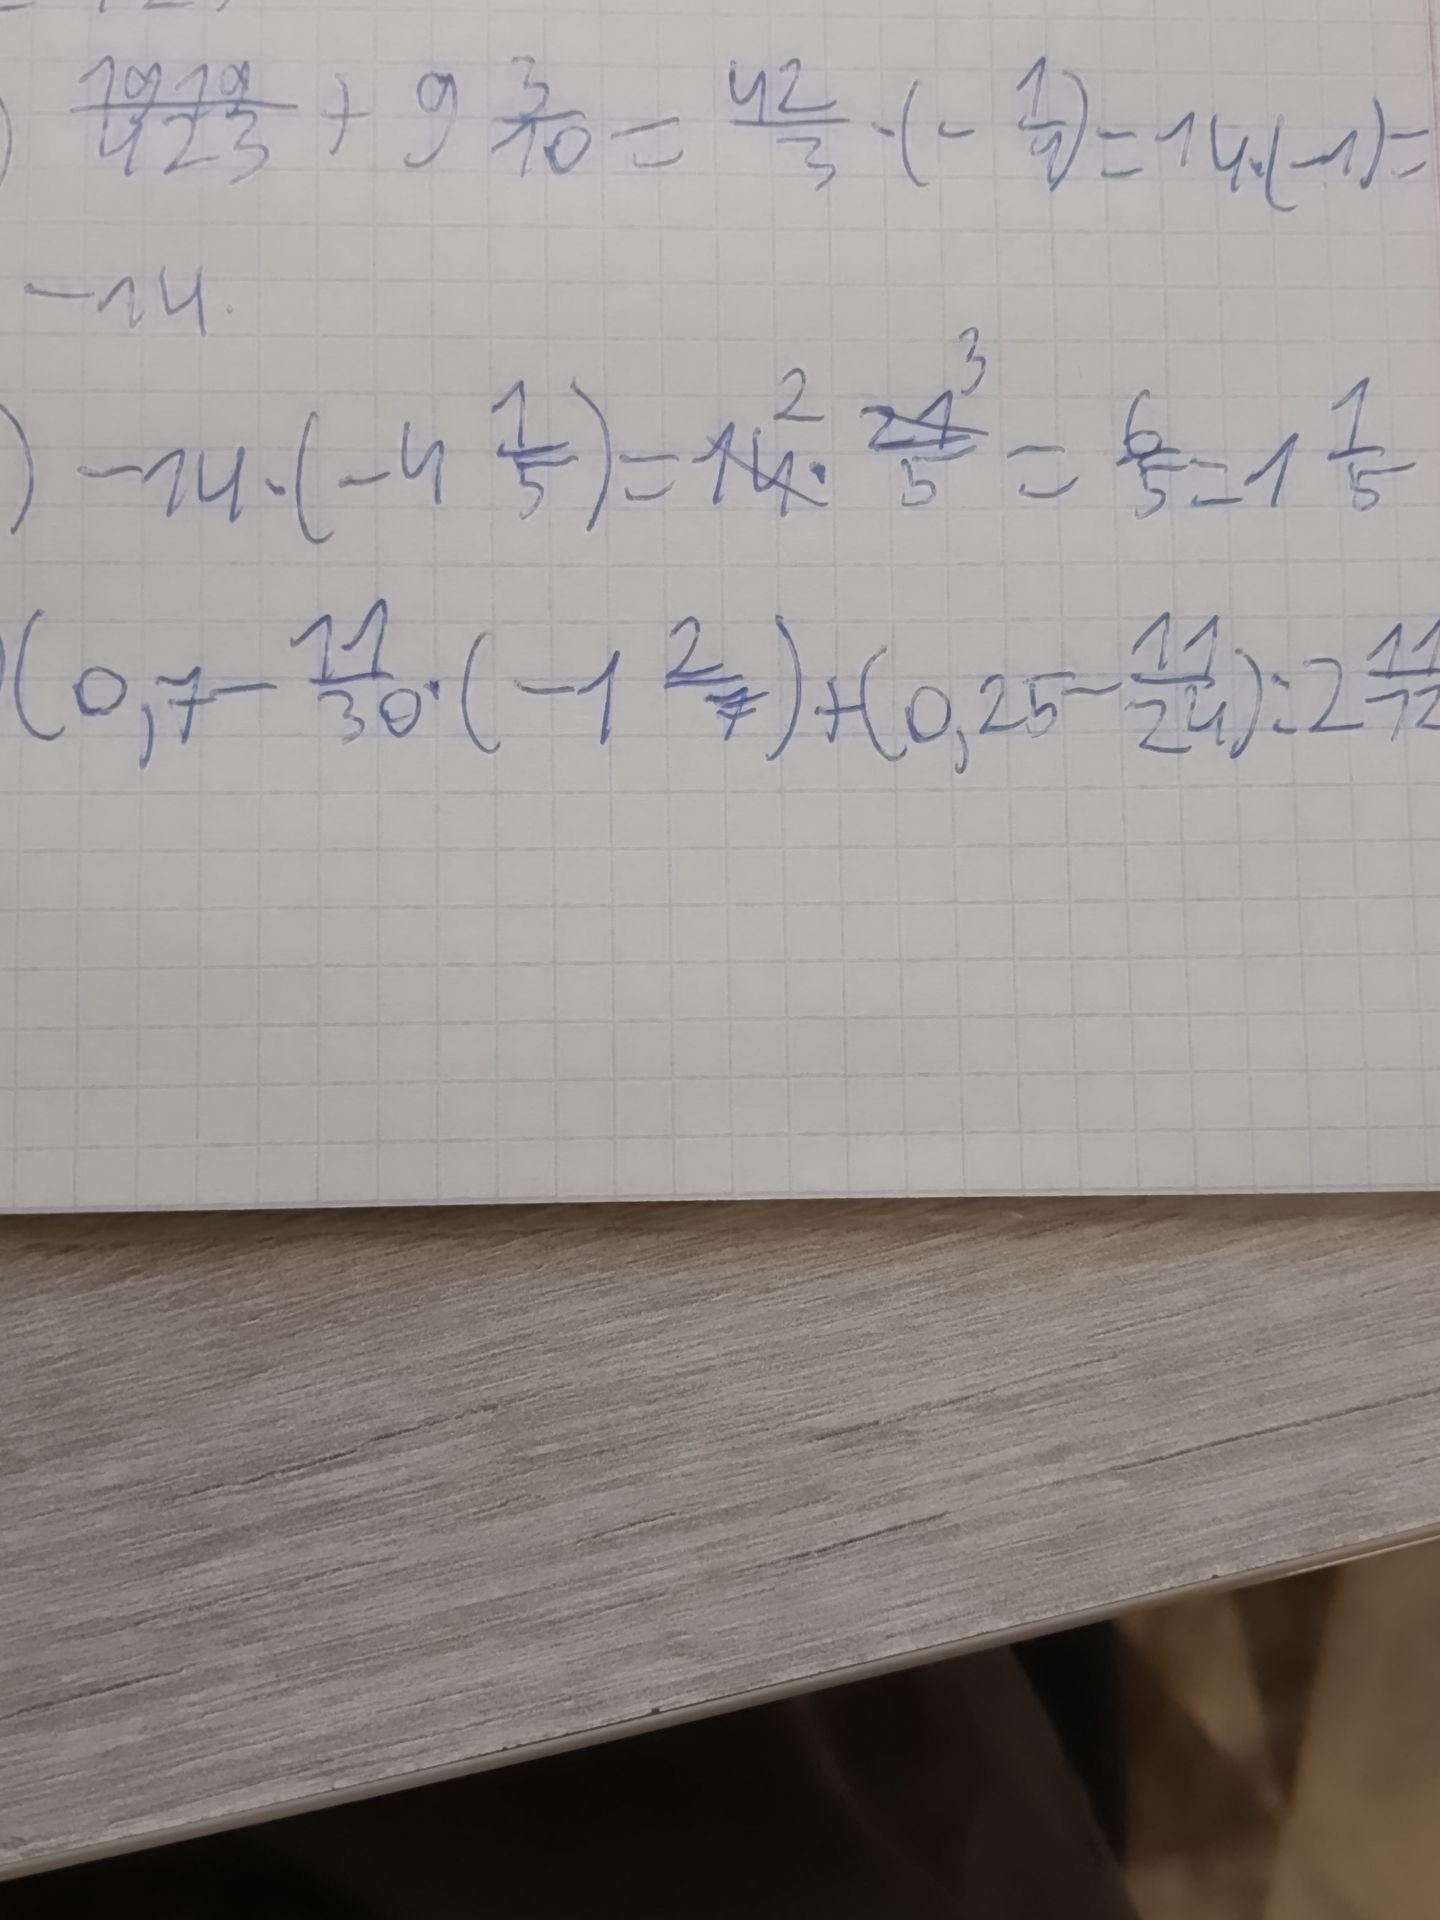 1919/423 + 9 3/10 = 42/3 · (- 1/1) = 14 · (-1) =
-14.
) -14 · (-4 1/5) = 14 2 · 21 3/5 = 6/5 = 1 1/5
) (0,7 - 11/30 · (-1 2/7) + (0,25 - 11/24) : 2 11/12